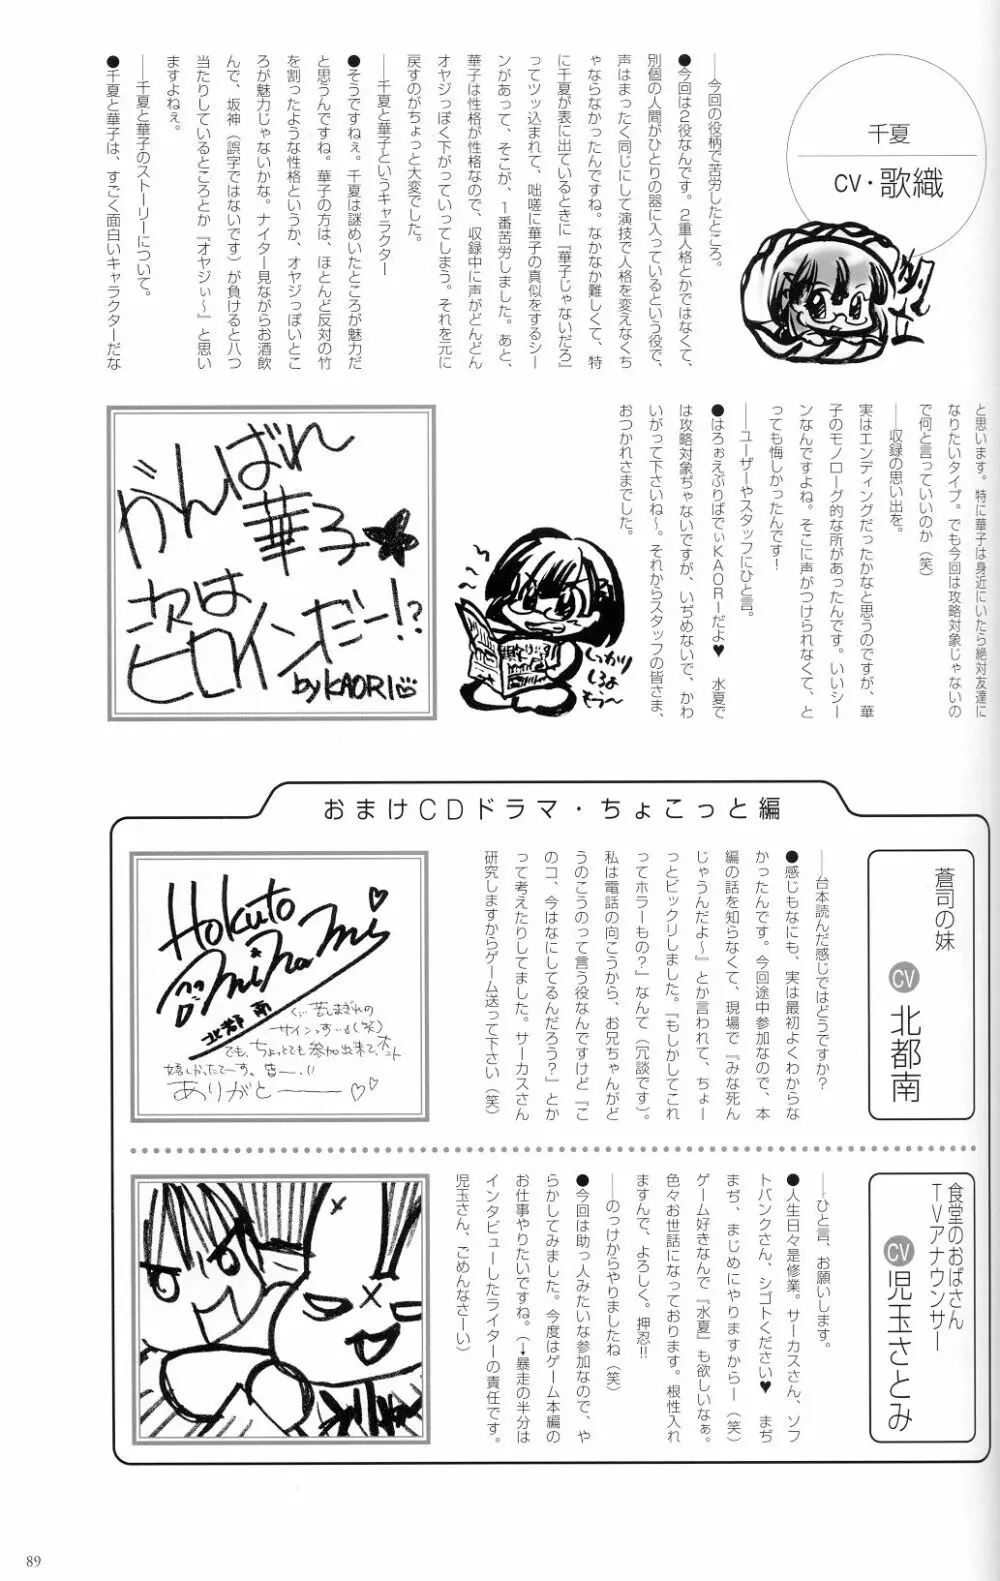 千夏
CV・歌織
――今回の役柄で苦労したところ。
●今回は２役なんです。２重人格とかではなくて、
別個の人間がひとりの器に入っているという役で、
声はまったく同じにして演技で人格を変えなくち
ゃならなかったんですね。なかなか難しくて、特
に千夏が表に出ているときに『華子じゃないだろ』
ってツッ込まれて、咄嗟に華子の真似をするシー
ンがあって、そこが、１番苦労しました。あと、
華子は性格が性格なので、収録中に声がどんどん
オヤジっぽく下がっていってしまう。それを元に
戻すのがちょっと大変でした。
――千夏と華子というキャラクター
●そうですねぇ。千夏は謎めいたところが魅力だ
と思うんですね。華子の方は、ほとんど反対の竹
を割ったような性格というか、オヤジっぽいとこ
ろが魅力じゃないかな。ナイター見ながらお酒飲
んで、坂神（誤字ではないです）が負けると八つ
当たりしているところとか『オヤジぃ～』と思い
ますよねぇ。
――千夏と華子のストーリーについて。
●千夏と華子は、すごく面白いキャラクターだな
と思います。特に華子は身近にいたら絶対友達に
なりたいタイプ。でも今回は攻略対象じゃないの
で何と言っていいのか（笑）
――収録の思い出を。
実はエンディングだったかなと思うのですが、華
子のモノローグ的な所があったんです。いいシー
ンなんですよね。そこに声がつけられなくて、と
っても悔しかったんです！
――ユーザーやスタッフにひと言。
●はろぉえぶりばでぃＫＡＯＲＩーだよ♥　水夏で
は攻略対象ぢゃないですが、いぢめないで、かわ
いがって下さいね～。それからスタッフの皆さま、
おつかれさまでした。
しっかり
しろよ
そう～
がんばれ
華子★
次は
ヒロインだー!?
by KAORI
おまけＣＤドラマ・ちょこっと編
蒼司の妹
CV 北都南
――台本読んだ感じではどうですか？
●感じもなにも、実は最初よくわからな
かったんです。今回途中参加なので、本
編の話を知らなくて、現場で『みな死ん
じゃうんだよ～』とか言われて、ちょー
っとビックリしました。『もしかしてこれ
ってホラーもの？』なんて（冗談です）。
私は電話の向こうから、お兄ちゃんがど
うのこうのって言う役なんですけど『こ
のコ、今はなにしてるんだろう？』とか
って考えたりしてました。サーカスさん
研究しますからゲーム送って下さい（笑）
Hokuto
Minami
北都 南
苦しまぎれの
サインっすー(笑)
でも、ちょっとでも参加出来て、ホント
嬉しかったでーす。皆―
ありがとー――♡♡
食堂のおばさん
ＴＶアナウンサー
CV 児玉さとみ
――ひと言、お願いします。
●人生日々是修業。サーカスさん、ソフ
トバンクさん、シゴトください♥　まぢ
まぢ、まじめにやりますからー（笑）
ゲーム好きなんで『水夏』も欲しいなぁ。
色々お世話になっております。根性入れ
ますんで、よろしく。押忍!!
――のっけからやりましたね（笑）
●今回は助っ人みたいな参加なので、や
らかしてみました。今度はゲーム本編の
お仕事やりたいですね。（→暴走の半分は
インタビューしたライターの責任です。
児玉さん、ごめんなさーい）
89